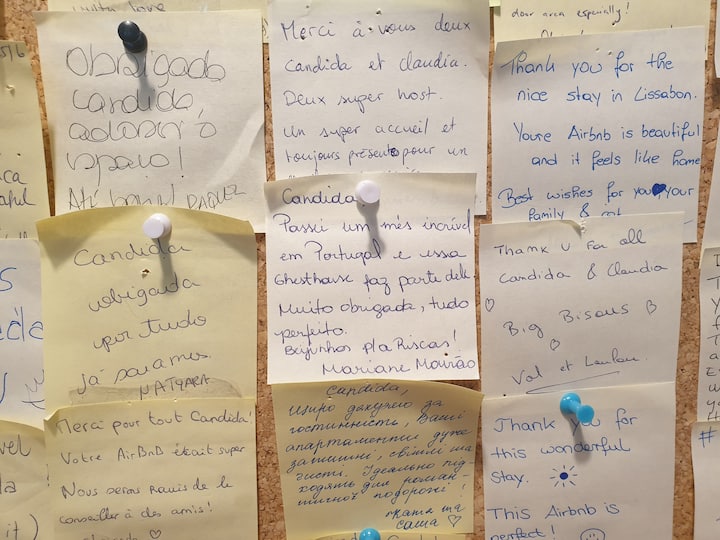 door area especially!
Obrigada
Candida
adorei o
espaio!
Merci à vous deux
Candida et Claudia.
Deux super host.
Un super accueil et
toujours présente pour un
Thank you for the
nice stay in Lissabon.
Youre Airbnb is beautiful
and it feels like home
Best wishes for you your
family &
Candida
obrigada
por tudo
já saiamos
Candida
Passei um mês incrível
em Portugal e essa
Ghesthouse faz parte dele
Muito obrigada, tudo
perfeito.
Beijinhos pla Riscas!
Mariane Mourão
Thank U for all
Candida & Claudia
Big Bisous
Val et Loulou.
Merci pour tout Candida!
Votre AirBnB était super
Nous serons ravis de le
conseiller à des amis!
Candida,
Щиро дякуємо за
гостинність, Ваші
апартаменти дуже
затишні, світлі та
чисті. Ідеально під
ходять для роман-
тичної подорожі!
Катя та
Саша
Thank you for
this wonderful
stay.
This Airbnb is
perfect!